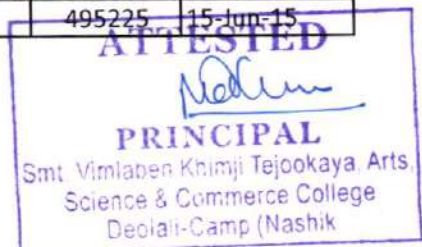 495225 15-Jun-15
ATTESTED
PRINCIPAL
Smt. Vimlaben Khimji Tejookaya, Arts,
Science & Commerce College
Deolali-Camp (Nashik